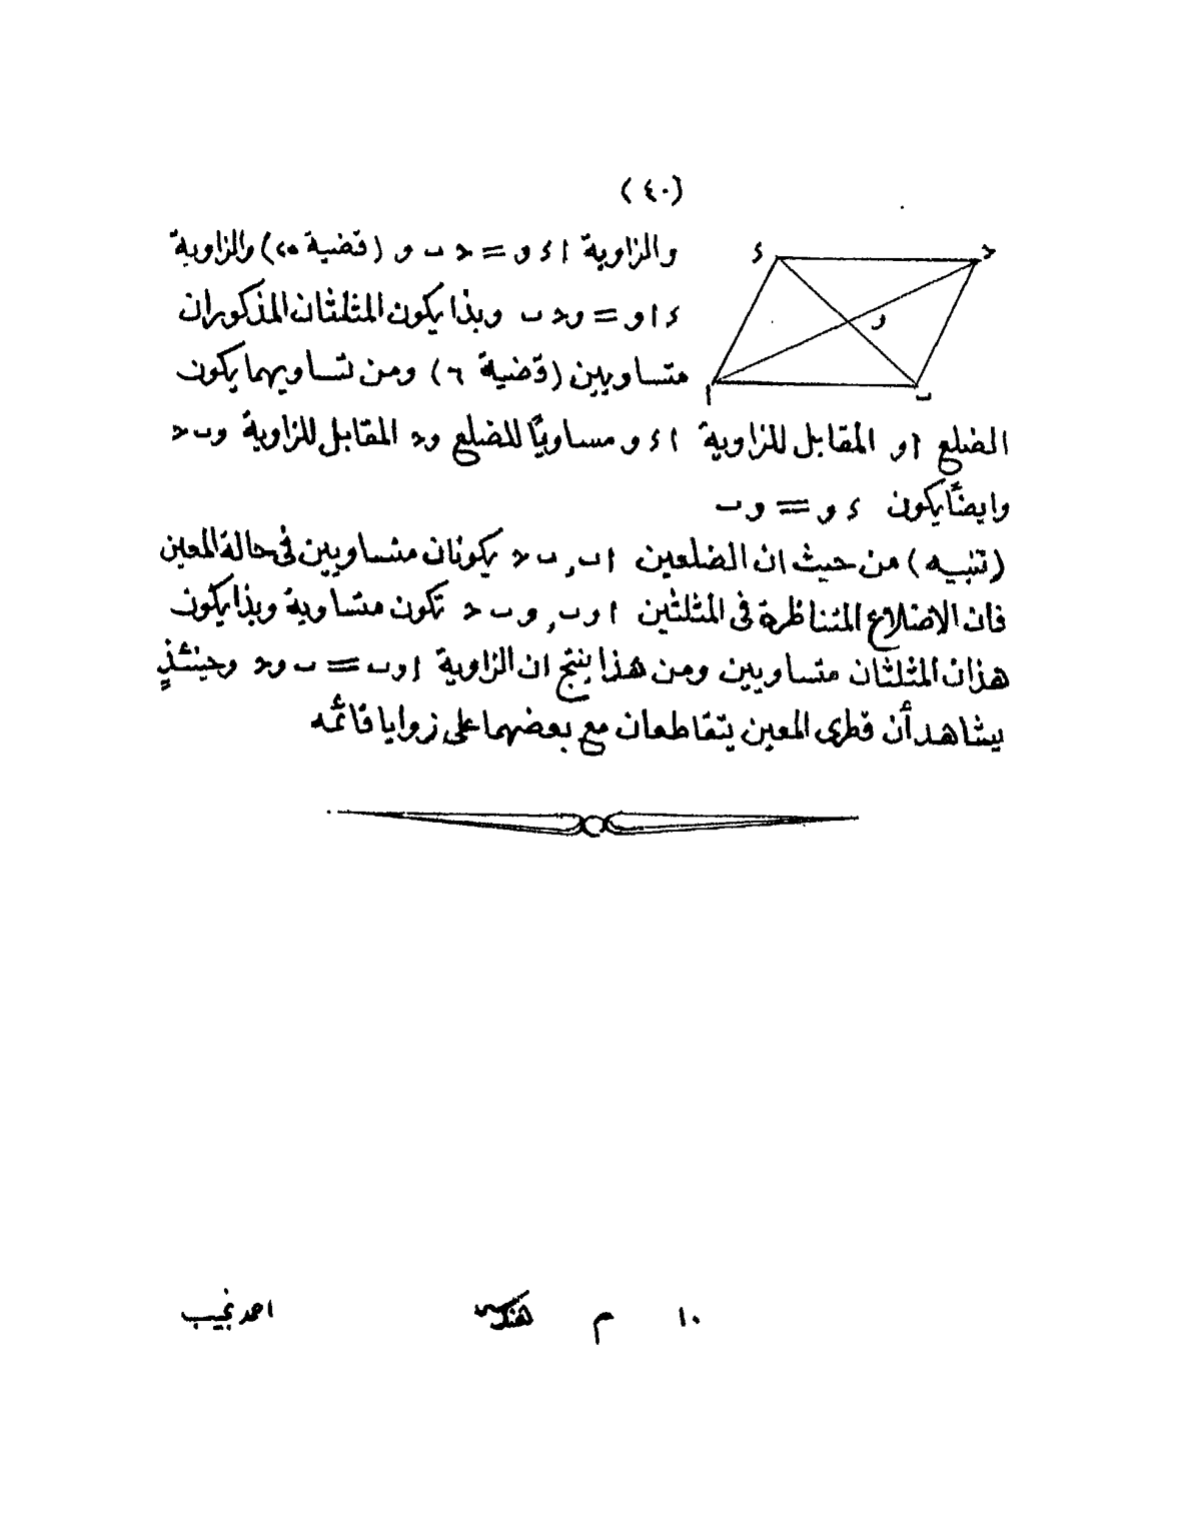 (٤٠)
والزاوية ا ء و = ح ب و (قضية ٢٥) والزاوية
ء ا و = و ح ب وبذا يكون المثلثان المذكوران
متساويين (قضية ٦) ومن تساويهما يكون
الضلع ا و المقابل للزاوية ا ء و مساويًا للضلع و ح المقابل للزاوية و ب ح
وايضًا يكون ء و = و ب
(تنبيه) من حيث ان الضلعين ا ب , ب ح يكونان متساويين فى حالة المعين
فان الاضلاع المتناظرة فى المثلثين ا و ب , و ب ح تكون متساوية وبذا يكون
هذان المثلثان متساويين ومن هذا ينتج ان الزاوية ا و ب = ب و ح وحينئذٍ
يشاهد أن قطرى المعين يتقاطعان مع بعضهما على زوايا قائمه
ء
ح
و
ا
ب
١٠ م احمد نجيب